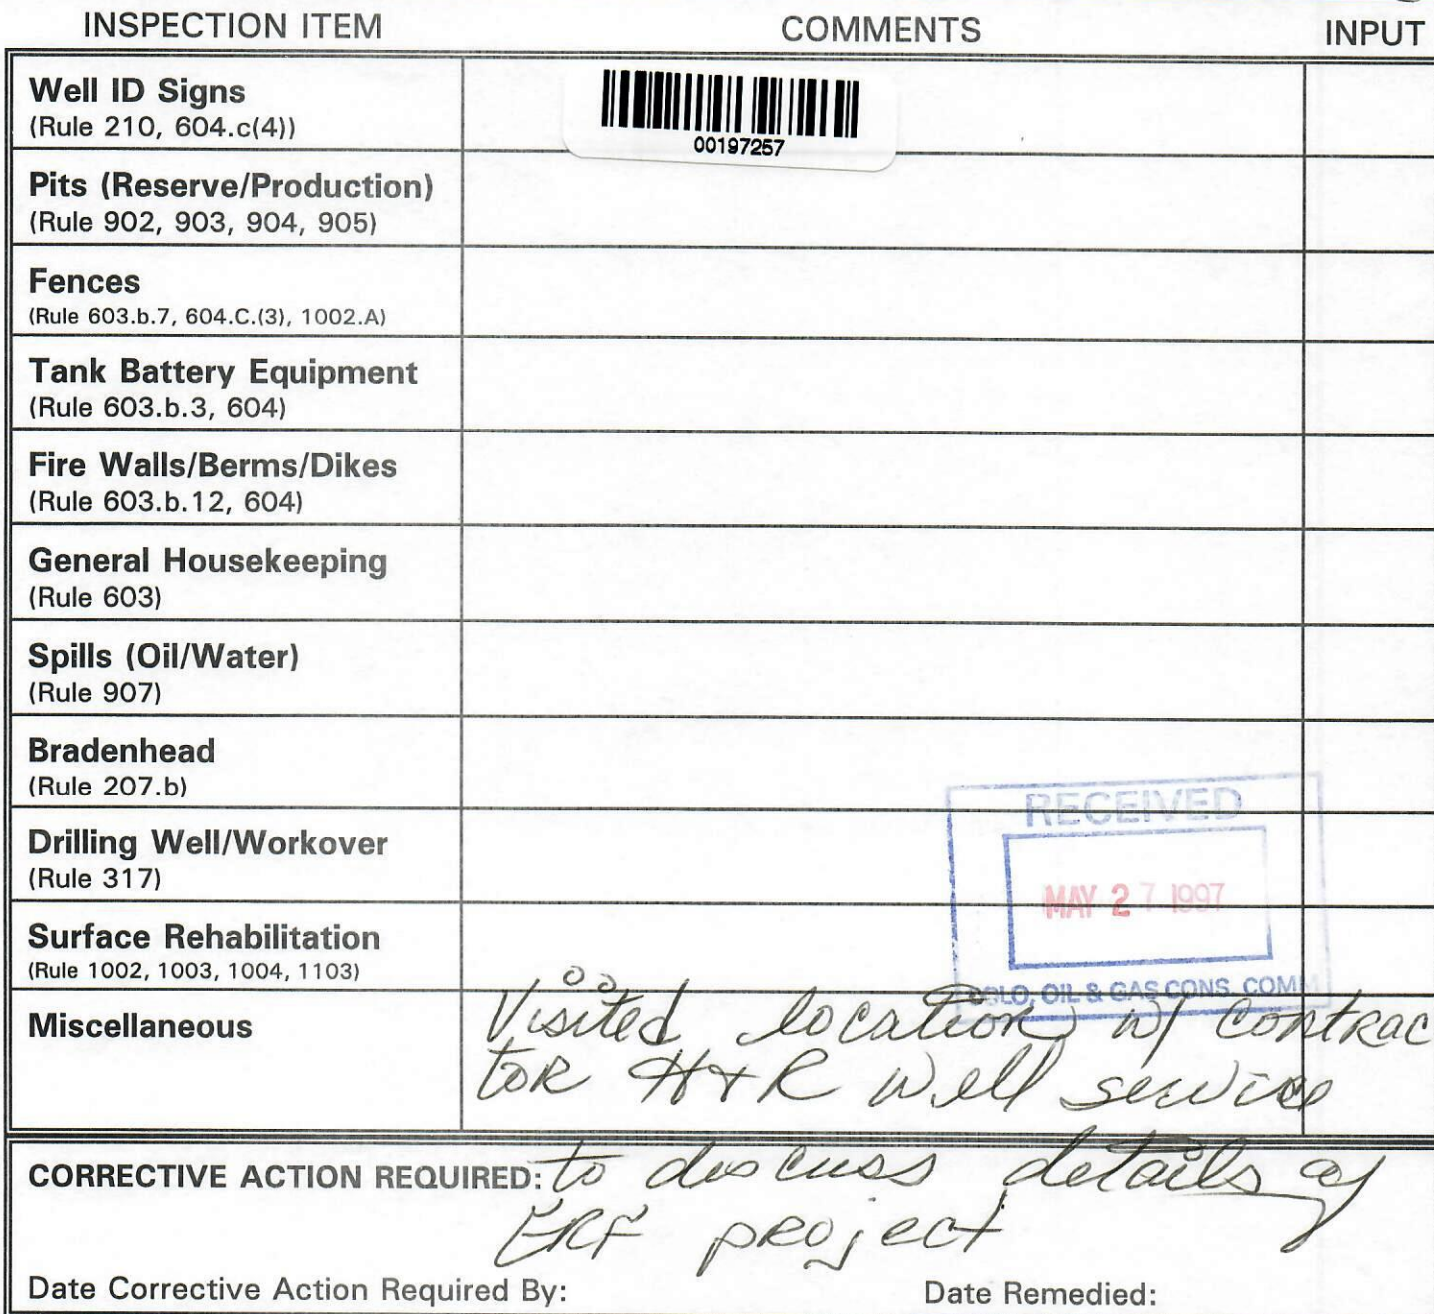 INSPECTION ITEM COMMENTS INPUT
Well ID Signs
(Rule 210, 604.c(4))
00197257
Pits (Reserve/Production)
(Rule 902, 903, 904, 905)
Fences
(Rule 603.b.7, 604.C.(3), 1002.A)
Tank Battery Equipment
(Rule 603.b.3, 604)
Fire Walls/Berms/Dikes
(Rule 603.b.12, 604)
General Housekeeping
(Rule 603)
Spills (Oil/Water)
(Rule 907)
Bradenhead
(Rule 207.b)
RECEIVED
Drilling Well/Workover
(Rule 317)
MAY 27 1997
Surface Rehabilitation
(Rule 1002, 1003, 1004, 1103)
OLO, OIL & GAS CONS. COMM
Miscellaneous
Visited location w/ contrac
tor H+R well service
CORRECTIVE ACTION REQUIRED: to discuss details of
project
Date Corrective Action Required By: Date Remedied: